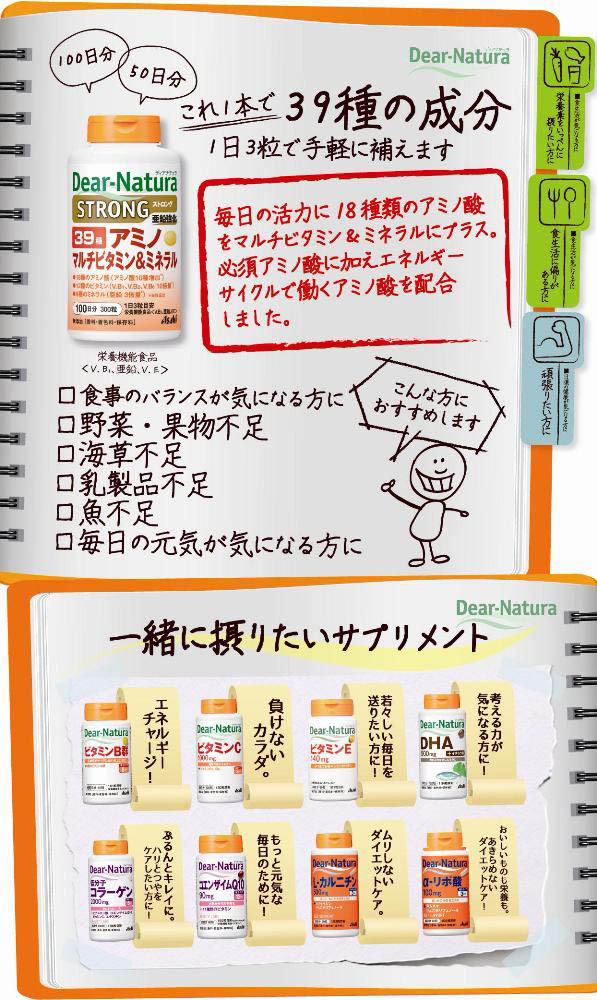 100日分
50日分
Dear-Natura
ディアナチュラ
これ1本で 39種の成分
1日3粒で手軽に補えます
Dear-Natura
ディアナチュラ
STRONG ストロング
亜鉛強化
39種 アミノ
マルチビタミン&ミネラル
100日分 300粒
1日3粒目安
Asahi
栄養機能食品
<V.B₁、亜鉛、V.E>
毎日の活力に18種類のアミノ酸
をマルチビタミン&ミネラルにプラス。
必須アミノ酸に加えエネルギー
サイクルで働くアミノ酸を配合
しました。
こんな方に
おすすめします
□食事のバランスが気になる方に
□野菜・果物不足
□海草不足
□乳製品不足
□魚不足
□毎日の元気が気になる方に
■食生活が気になる方に
栄養素をいっぺんに
摂りたい方に
■食生活が気になる方に
食生活に偏りが
ある方に
■日頃の健康が気になる方に
頑張りたい方に
Dear-Natura
ディアナチュラ
一緒に摂りたいサプリメント
Dear-Natura
ビタミンB群
エネルギー
チャージ!
Dear-Natura
ビタミンC
負けない
カラダ。
Dear-Natura
ビタミンE
若々しい毎日を
送りたい方に!
Dear-Natura
DHA
考える力が
気になる方に!
Dear-Natura
低分子
コラーゲン
ぷるんとキレイに。
ハリとつやを
ケアしたい方に!
Dear-Natura
コエンザイムQ10
もっと元気な
毎日のために!
Dear-Natura
L-カルニチン
ムリしない
ダイエットケア。
Dear-Natura
α-リポ酸
おいしいものも栄養も。
あきらめない
ダイエットケア!